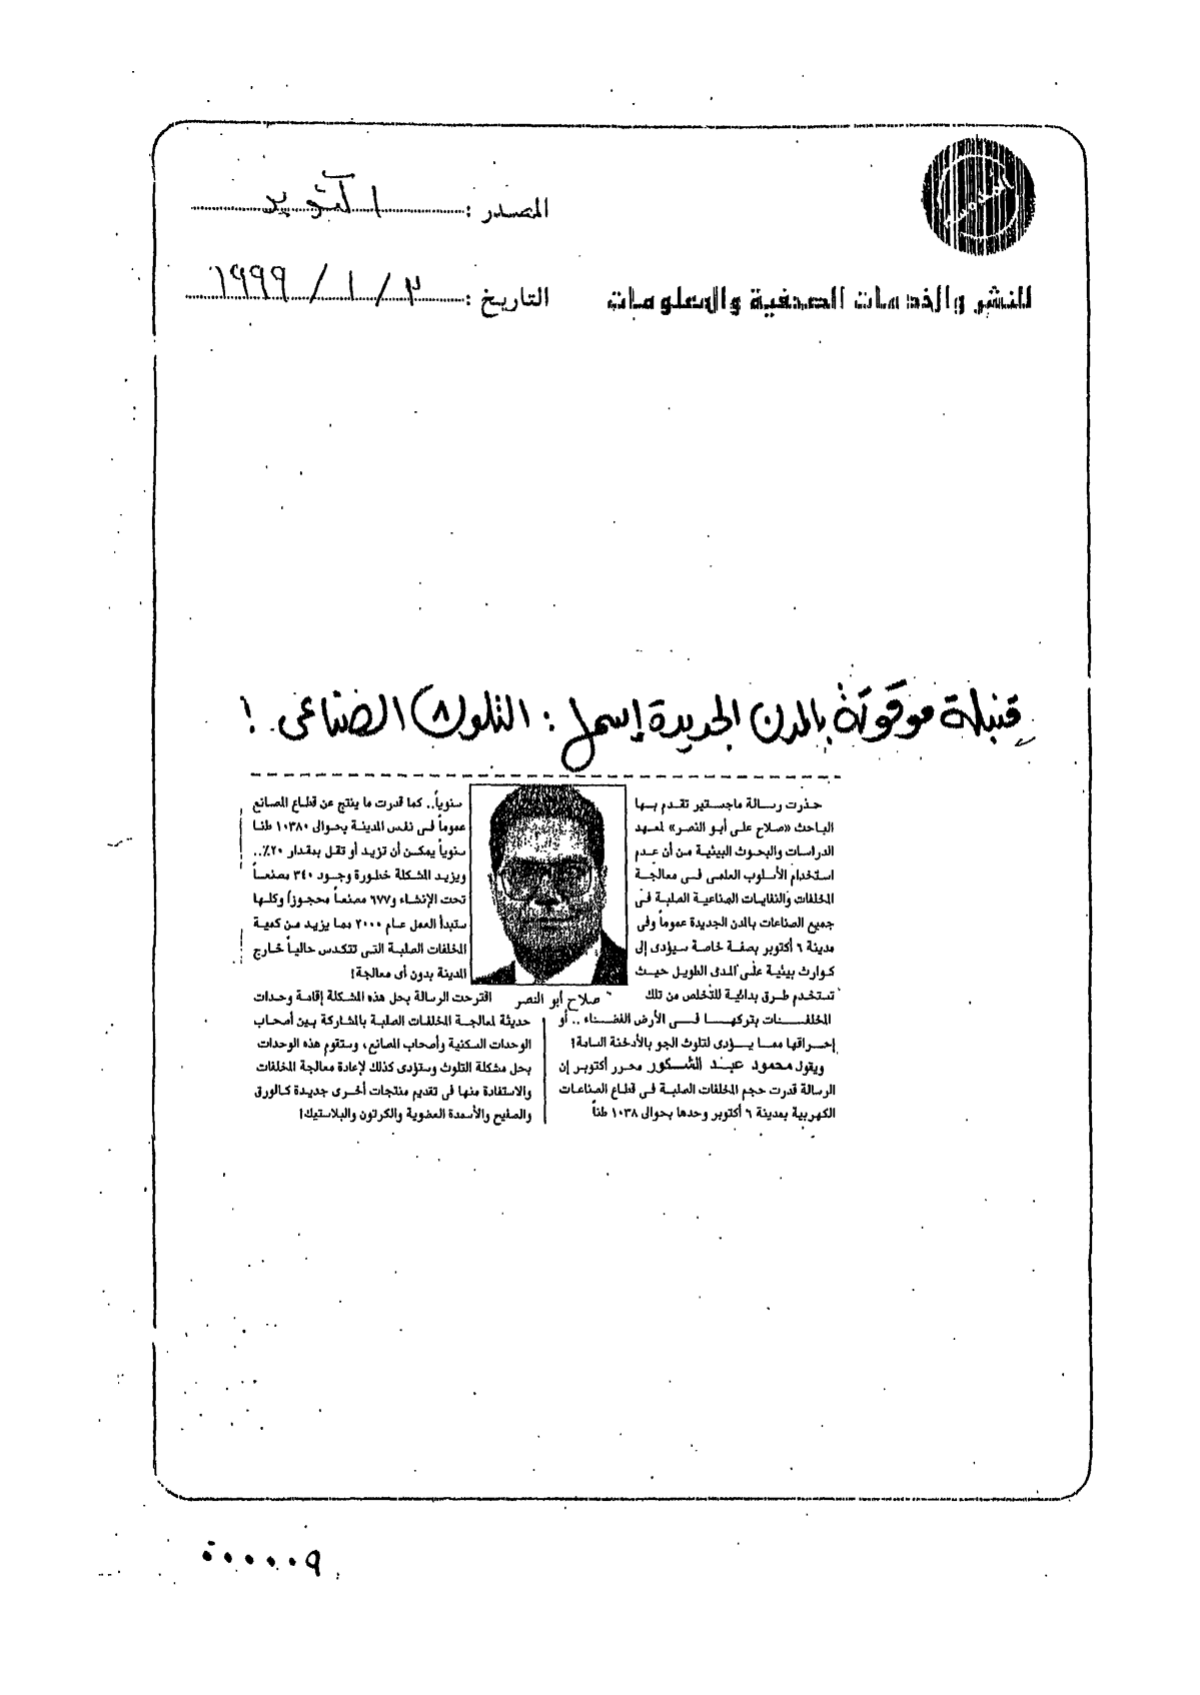 المصدر : اكتوبر
للنشر والخدمات الصحفية والمعلومات
التاريخ : ٣ / ١ / ١٩٩٩
قنبلة موقوتة بالمدن الجديدة إسمها : التلوث الصناعى !
حذرت رسالة ماجستير تقدم بها
الباحث «صلاح على أبو النصر» لمعهد
الدراسات والبحوث البيئية من أن عدم
استخدام الأسلوب العلمى فى معالجة
المخلفات والنفايات الصناعية الصلبة فى
جميع الصناعات بالمدن الجديدة عموماً وفى
مدينة ٦ أكتوبر بصفة خاصة سيؤدى إلى
كوارث بيئية على المدى الطويل حيث
تستخدم طرق بدائية للتخلص من تلك
المخلفات بتركها فى الأرض الفضاء .. أو
إحراقها مما يؤدى لتلوث الجو بالأدخنة السامة!
ويقول محمود عبد الشكور محرر أكتوبر إن
الرسالة قدرت حجم المخلفات الصلبة فى قطاع الصناعات
الكهربية بمدينة ٦ أكتوبر وحدها بحوالى ١٠٣٨ طناً
صلاح أبو النصر
سنوياً.. كما قدرت ما ينتج عن قطاع المصانع
عموماً فى نفس المدينة بحوالى ١٠٣٨٠ طنا
سنوياً يمكن أن تزيد أو تقل بمقدار ٢٠٪..
ويزيد المشكلة خطورة وجود ٣٤٠ مصنعاً
تحت الإنشاء و٦٧٧ مصنعاً محجوزاً وكلها
ستبدأ العمل عام ٢٠٠٠ مما يزيد من كمية
المخلفات الصلبة التى تتكدس حالياً خارج
المدينة بدون أى معالجة!
اقترحت الرسالة بحل هذه المشكلة إقامة وحدات
حديثة لمعالجة المخلفات الصلبة بالمشاركة بين أصحاب
الوحدات السكنية وأصحاب المصانع، وستقوم هذه الوحدات
بحل مشكلة التلوث وستؤدى كذلك لإعادة معالجة المخلفات
والاستفادة منها فى تقديم منتجات أخرى جديدة كالورق
والصفيح والأسمدة العضوية والكرتون والبلاستيك!
٠٠٠٠٠٩